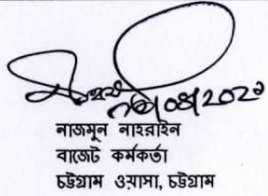 নাজমুন নাহরাইন
বাজেট কর্মকর্তা
চট্টগ্রাম ওয়াসা, চট্টগ্রাম